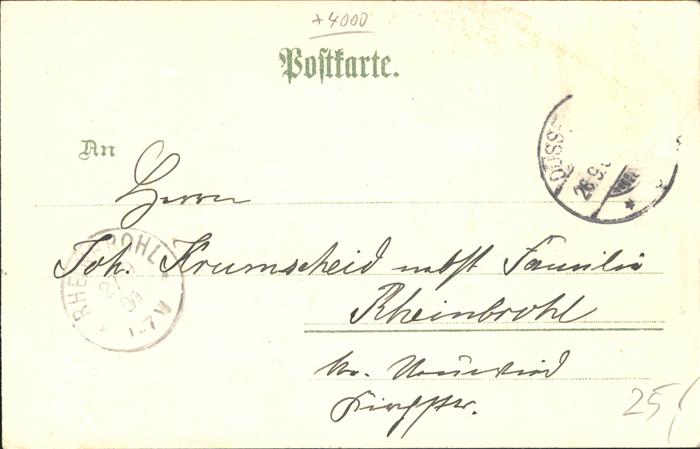 +4000
Postkarte.
DÜSS
26.9.
An
Herrn
Joh. Krumscheid nebst Familie
RHEINBROHL
27
05
-7V
Rheinbrohl
Kr. Neuwied
Kirchstr.
25,